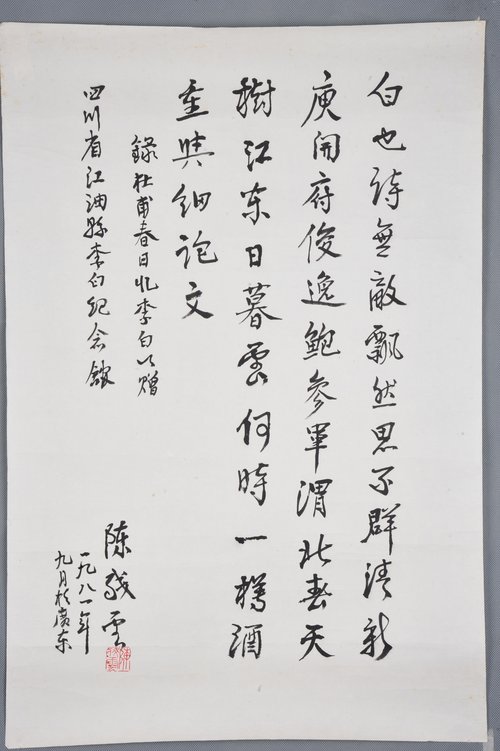 白也詩無敵飄然思不群清新
庾開府俊逸鮑參軍渭北春天
樹江东日暮雲何時一樽酒
重與細论文
錄杜甫春日忆李白以贈
四川省江油縣李白纪念館
陈残雲
一九八一年
九月於廣东